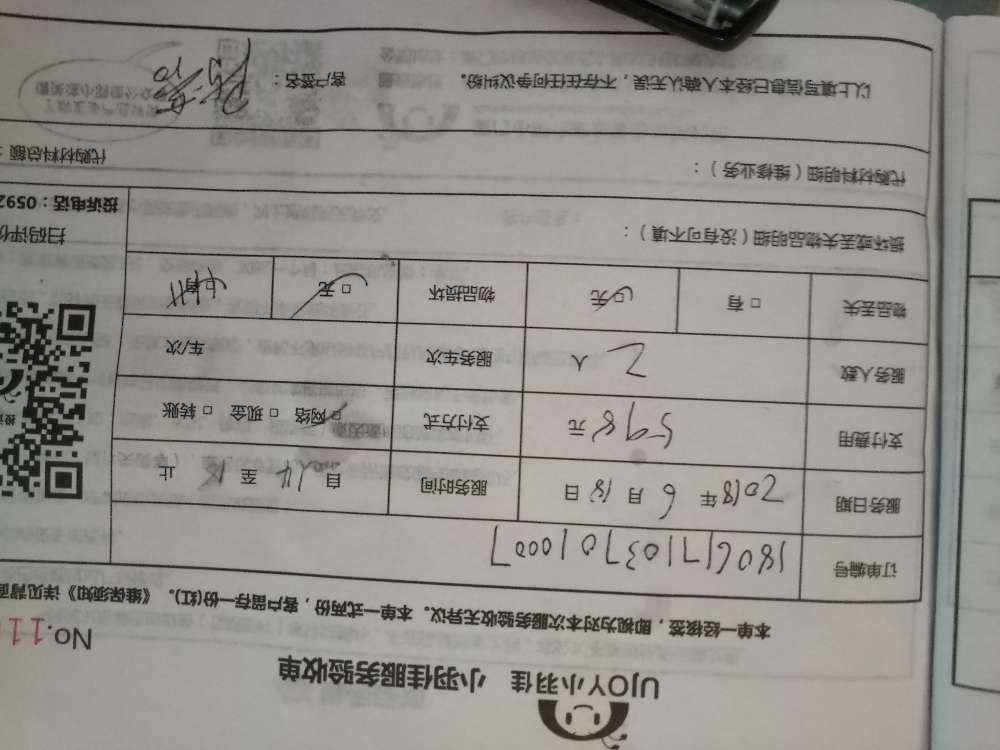 UJOY小羽佳 小羽佳服务验收单
No.11
本单一经核签，即视为对本次服务验收无异议。本单一式两份，客户留存一份(红)。《维保须知》详见背面
订单编号 1806171037010007
服务日期 2018年6月18日 服务时间 自14至18止
支付费用 598元 支付方式 □网络 □现金 □转账
服务人数 2人 服务车次 车/次
物品丢失 □有 □无 物品损坏 □无 □有
损坏或丢失物品明细（没有可不填）：
扫码评价
投诉电话：0592
代购材料明细（维修业务）：
代购材料总额：
以上填写信息已经本人确认无误，不存在任何争议纠纷。 客户签名：